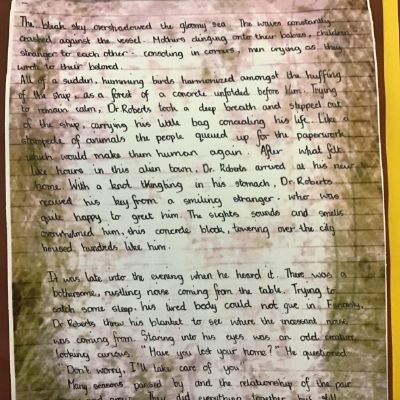 The bleak sky overshadowed the gloomy sea. The waves constantly
crashed against the vessel. Mothers clinging onto their babies, children
stranger to each other - consoling in corners, men crying as they
wrote to their beloved.
All of a sudden, humming birds harmonized amongst the huffing
of the ship, as a forest of a concrete unfolded before him. Trying
to remain calm, Dr. Roberts took a deep breath and stepped out
of the ship, carrying his little bag concealing his life. Like a
stampede of animals the people queued up for the paperwork
which would make them human again. After what felt
like hours in this alien town, Dr. Roberts arrived at his new
home. With a knot in his stomach, Dr. Roberts
received his key from a smiling stranger, who was
quite happy to greet him. The sights sounds and smells
overwhelmed him, this concrete block, towering over the city
housed hundreds like him.
It was late into the evening when he heard it. There was a
bothersome, rustling noise coming from the table. Trying to
catch some sleep, his tired body could not give in. Furiously,
Dr Roberts threw his blanket to see where the incessant noise
was coming from. Staring into his eyes was an odd creature
looking curious. "Have you lost your home?" He questioned
"Don't worry, I'll take care of you.
Many seasons passed by and the relationship of the pair
grew. They did everything together but still